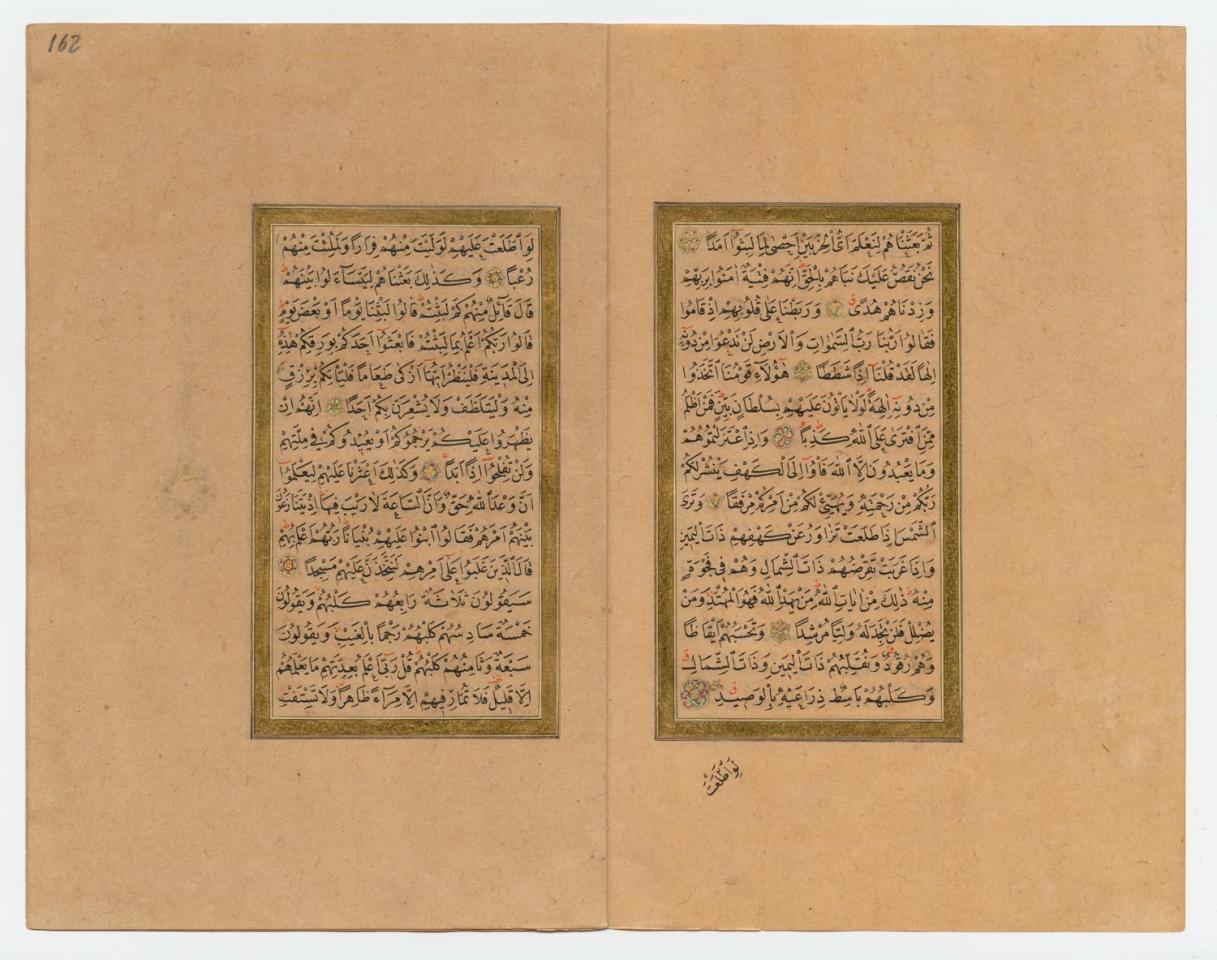 ثُمَّ بَعَثْنَاهُمْ لِنَعْلَمَ اَىُّ الْحِزْبَيْنِ اَحْصٰى لِمَا لَبِثُوا اَمَدًا
نَحْنُ نَقُصُّ عَلَيْكَ نَبَاَهُمْ بِالْحَقِّ اِنَّهُمْ فِتْيَةٌ اٰمَنُوا بِرَبِّهِمْ
وَزِدْنَاهُمْ هُدًى وَرَبَطْنَا عَلٰى قُلُوبِهِمْ اِذْ قَامُوا
فَقَالُوا رَبُّنَا رَبُّ السَّمٰوَاتِ وَالْاَرْضِ لَنْ نَدْعُوَا مِنْ دُونِهٖ
اِلٰهًا لَقَدْ قُلْنَا اِذًا شَطَطًا هٰؤُلَاءِ قَوْمُنَا اتَّخَذُوا
مِنْ دُونِهٖ اٰلِهَةً لَوْلَا يَاْتُونَ عَلَيْهِمْ بِسُلْطَانٍ بَيِّنٍ فَمَنْ اَظْلَمُ
مِمَّنِ افْتَرٰى عَلَى اللّٰهِ كَذِبًا وَاِذِ اعْتَزَلْتُمُوهُمْ
وَمَا يَعْبُدُونَ اِلَّا اللّٰهَ فَاْوُا اِلَى الْكَهْفِ يَنْشُرْ لَكُمْ
رَبُّكُمْ مِنْ رَحْمَتِهٖ وَيُهَيِّئْ لَكُمْ مِنْ اَمْرِكُمْ مِرْفَقًا وَتَرَى
الشَّمْسَ اِذَا طَلَعَتْ تَزَاوَرُ عَنْ كَهْفِهِمْ ذَاتَ الْيَمِينِ
وَاِذَا غَرَبَتْ تَقْرِضُهُمْ ذَاتَ الشِّمَالِ وَهُمْ فِى فَجْوَةٍ
مِنْهُ ذٰلِكَ مِنْ اٰيَاتِ اللّٰهِ مَنْ يَهْدِ اللّٰهُ فَهُوَ الْمُهْتَدِ وَمَنْ
يُضْلِلْ فَلَنْ تَجِدَ لَهُ وَلِيًّا مُرْشِدًا وَتَحْسَبُهُمْ اَيْقَاظًا
وَهُمْ رُقُودٌ وَنُقَلِّبُهُمْ ذَاتَ الْيَمِينِ وَذَاتَ الشِّمَالِ
وَكَلْبُهُمْ بَاسِطٌ ذِرَاعَيْهِ بِالْوَصِيدِ
لَوِ اطَّلَعْتَ
162
لَوِ اطَّلَعْتَ عَلَيْهِمْ لَوَلَّيْتَ مِنْهُمْ فِرَارًا وَلَمُلِئْتَ مِنْهُمْ
رُعْبًا وَكَذٰلِكَ بَعَثْنَاهُمْ لِيَتَسَاءَلُوا بَيْنَهُمْ
قَالَ قَائِلٌ مِنْهُمْ كَمْ لَبِثْتُمْ قَالُوا لَبِثْنَا يَوْمًا اَوْ بَعْضَ يَوْمٍ
قَالُوا رَبُّكُمْ اَعْلَمُ بِمَا لَبِثْتُمْ فَابْعَثُوا اَحَدَكُمْ بِوَرِقِكُمْ هٰذِهٖ
اِلَى الْمَدِينَةِ فَلْيَنْظُرْ اَيُّهَا اَزْكٰى طَعَامًا فَلْيَاْتِكُمْ بِرِزْقٍ
مِنْهُ وَلْيَتَلَطَّفْ وَلَا يُشْعِرَنَّ بِكُمْ اَحَدًا اِنَّهُمْ اِنْ
يَظْهَرُوا عَلَيْكُمْ يَرْجُمُوكُمْ اَوْ يُعِيدُوكُمْ فِى مِلَّتِهِمْ
وَلَنْ تُفْلِحُوا اِذًا اَبَدًا وَكَذٰلِكَ اَعْثَرْنَا عَلَيْهِمْ لِيَعْلَمُوا
اَنَّ وَعْدَ اللّٰهِ حَقٌّ وَاَنَّ السَّاعَةَ لَا رَيْبَ فِيهَا اِذْ يَتَنَازَعُونَ
بَيْنَهُمْ اَمْرَهُمْ فَقَالُوا ابْنُوا عَلَيْهِمْ بُنْيَانًا رَبُّهُمْ اَعْلَمُ بِهِمْ
قَالَ الَّذِينَ غَلَبُوا عَلٰى اَمْرِهِمْ لَنَتَّخِذَنَّ عَلَيْهِمْ مَسْجِدًا
سَيَقُولُونَ ثَلَاثَةٌ رَابِعُهُمْ كَلْبُهُمْ وَيَقُولُونَ
خَمْسَةٌ سَادِسُهُمْ كَلْبُهُمْ رَجْمًا بِالْغَيْبِ وَيَقُولُونَ
سَبْعَةٌ وَثَامِنُهُمْ كَلْبُهُمْ قُلْ رَبِّى اَعْلَمُ بِعِدَّتِهِمْ مَا يَعْلَمُهُمْ
اِلَّا قَلِيلٌ فَلَا تُمَارِ فِيهِمْ اِلَّا مِرَاءً ظَاهِرًا وَلَا تَسْتَفْتِ